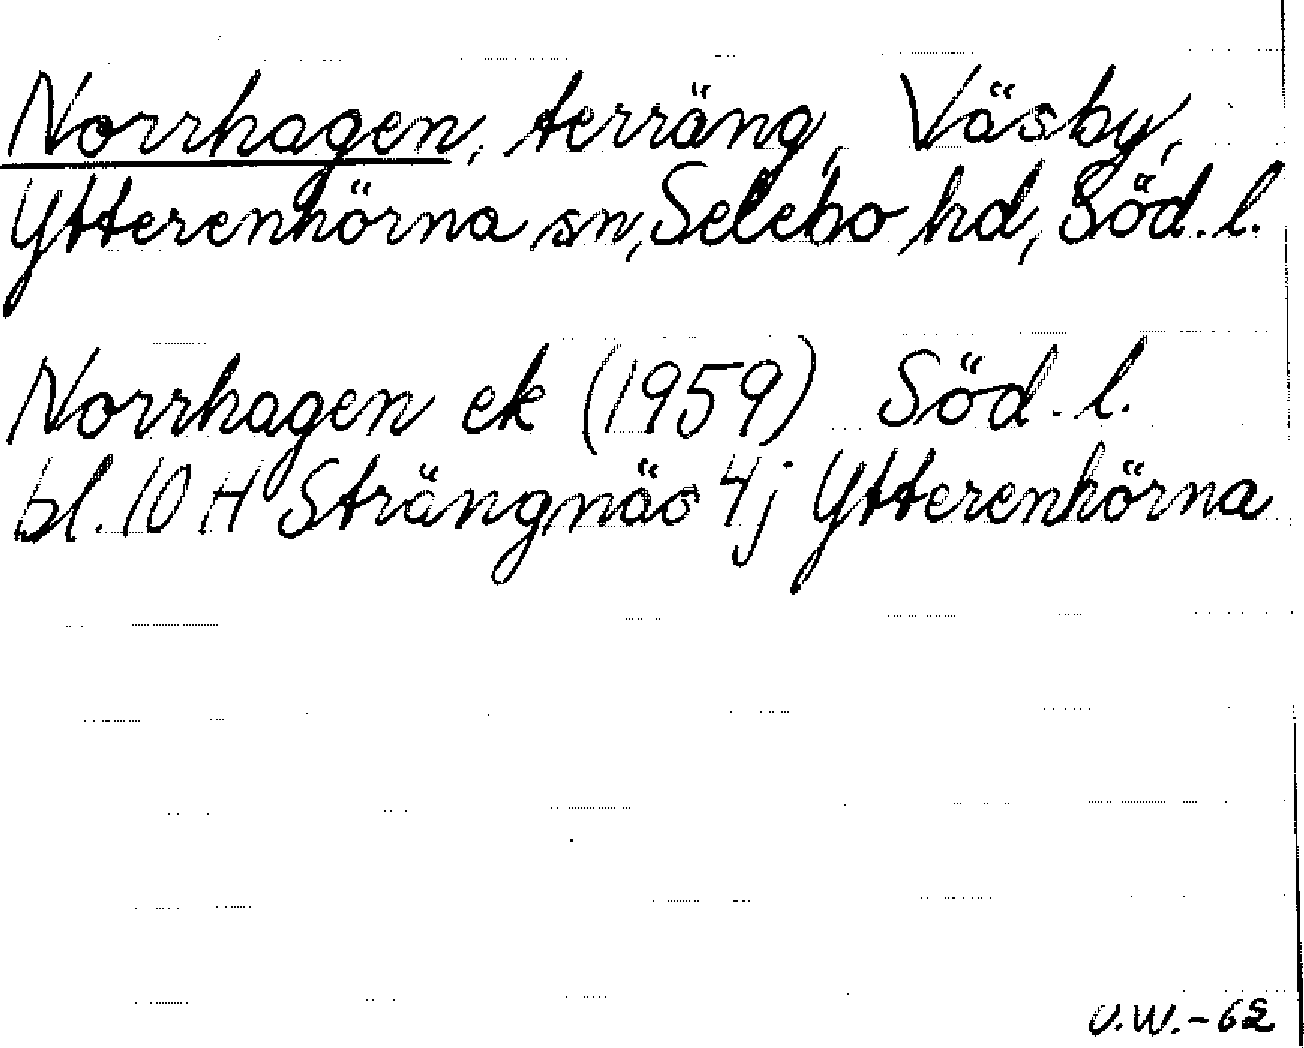 Norrhagen, terräng, Väsby,
Ytterenhörna sn, Selebo hd, Söd. l.
Norrhagen ek (1959) Söd. l.
bl. 10 H Strängnäs 4j Ytterenhörna
U.W.-62